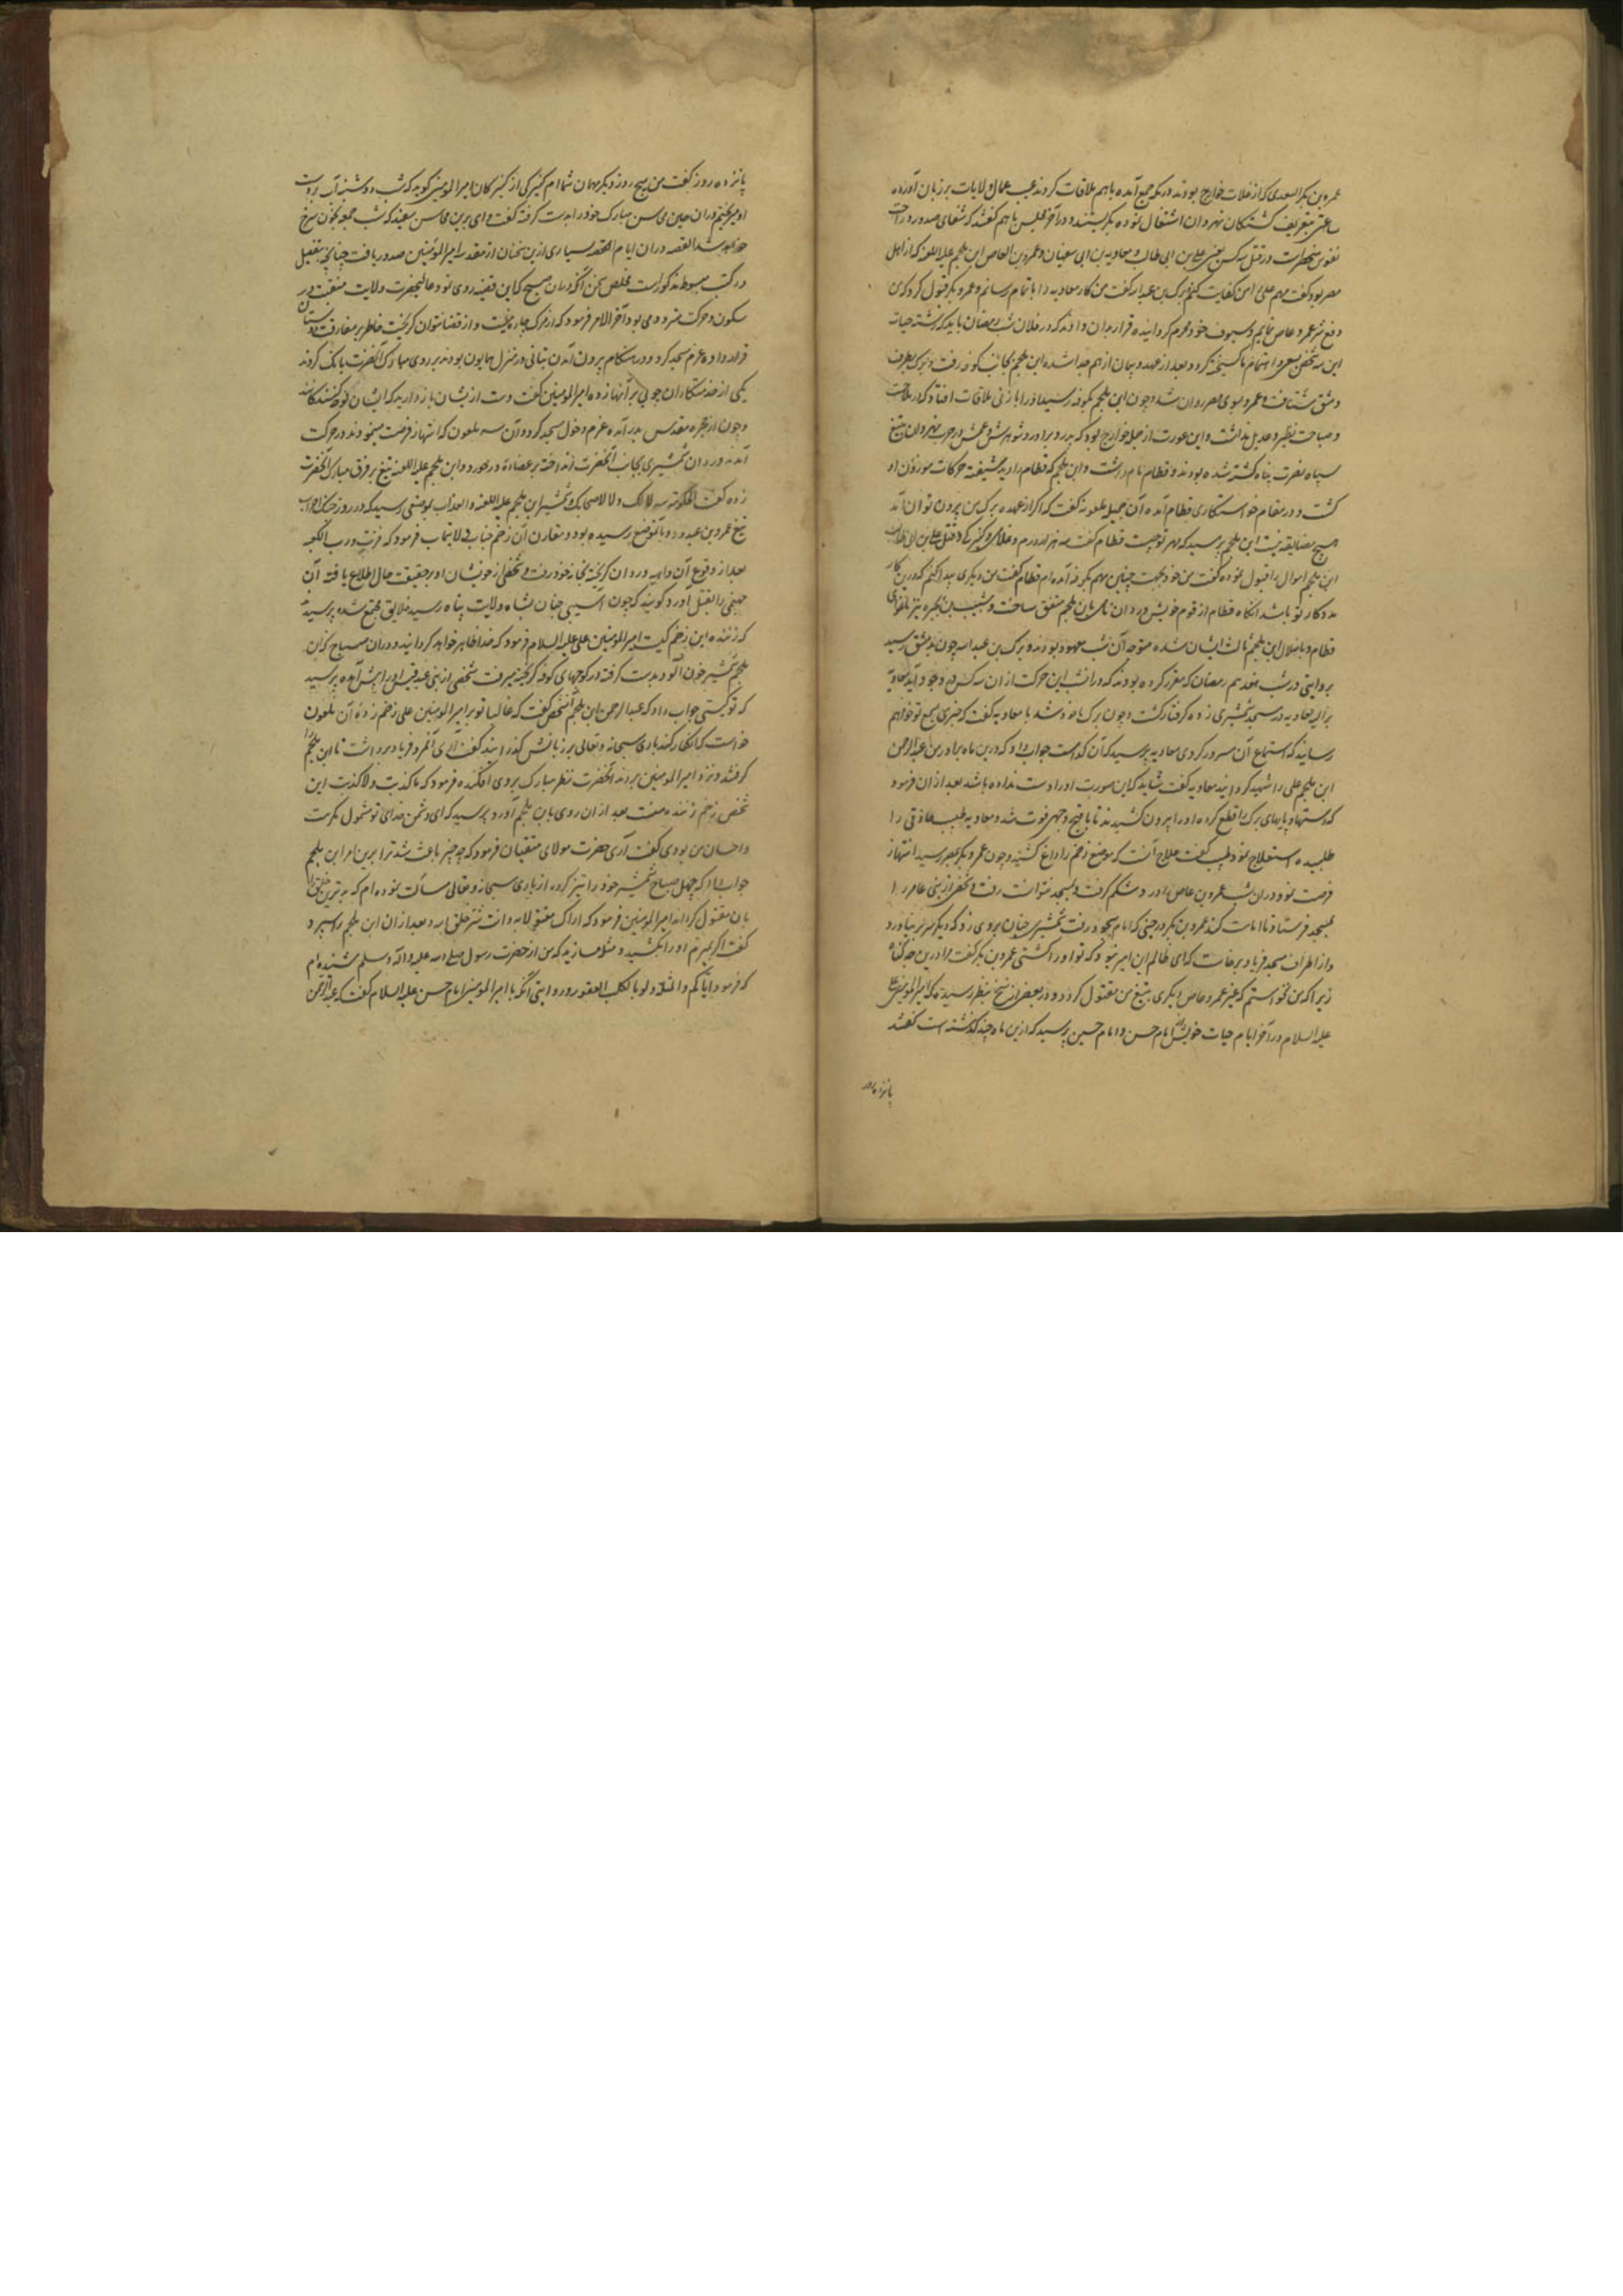 عمرو بن بکر السعدی که از غلات خوارج بودند در مکه جمع آمده باهم ملاقات کردند عیب عمال ولایات بر زبان آورده
ساعتی بتعریف کشتکان نهروان اشتغال نموده بگریستند و در آخر مجلس باهم گفتند که شفای صدور و راحت
نفوس منحصر است در قتل سه کس یعنی علی بن ابی طالب و معاویه بن ابی سفیان و عمرو بن العاص ابن ملجم علیه اللعنه که از اهل
مصر بود گفت مهم علی را من کفایت کنم برک بن عبدالله گفت من کار معاویه را باتمام رسانم و عمرو بکر قبول کرد که من
دفع شر عمرو عاص نمایم و سیوف خود را قرار بدان دادند که در فلان شب رمضان باید که رشته حیات
این سه شخص بسعی و اهتمام ما کسیخته کردد و بعد از عهد و پیمان از هم جدا شده ابن ملجم بجانب کوفه رفت و برک بطرف
دمشق شتافت و عمرو بسوی مصر روان شد و چون ابن ملجم بکوفه رسید او را با زنی ملاقات افتاد که در ملاحت
و صباحت نظیر و عدیل نداشت و این عورت از جمله خوارج بود که پدر و برادر و شوهرش و عمش در حرب نهروان بتیغ
سپاه نصرت پناه کشته شده بودند و قطام نام داشت و ابن ملجم که قطام را دید شیفته حرکات موزون او
کشت و در مقام خواستکاری قطام آمده آن جمیله ملعونه گفت که اگر از عهده مهر من بیرون توانی آمد
هیچ مضایقه نیست ابن ملجم پرسید که مهر تو چیست قطام گفت سه هزار درم و غلامی و کنیزکی و قتل علی بن ابی طالب
ابن ملجم اموال را قبول نموده گفت من خود بجهت چنین مهم بکوفه آمده ام قطام گفت من دیگری پیدا کنم که درین کار
مددکار تو باشد آنکاه قطام از قوم خویش وردان نام را با ابن ملجم متفق ساخت و شبیب بن بجره نیز باغوای
قطام و باضلال ابن ملجم ثالث ایشان شده مترصد آن شب معهود بودند و برک بن عبدالله چون بدمشق رسید
بروایتی در شب هفدهم رمضان که مقرر کرده بودند که در آن شب این حرکت از آن سه کس در وجود آید معاویه
برالیه معاویه در مسجد شمشیری زده گرفتار کشت و چون برک ماخوذ شد با معاویه گفت که خبری بسمع تو خواهم
رسانید که استماع آن مسرور کردی معاویه پرسید که آن کدامست جواب داد که درین ماه برادر من عبدالرحمن
ابن ملجم علی را شهید کرداند معاویه گفت شاید که این صورت او را دست نداده باشد بعد از آن فرمود
که دستها و پایهای برک را قطع کرده او را بیرون کشیدند تا باقبح وجهی فوت شد و معاویه طبیب حاذقی را
طلبیده استعلاج نمود طبیب گفت علاج آنست که موضع زخم را داغ کنند و چون عمرو بکر بمصر رسید انتهاز
فرصت نمود در آن شب عمرو بن عاص را درد شکم گرفت و بمسجد نتوانست رفت و شخصی از بنی عامر را
بمسجد فرستاد تا امامت کند عمرو بن بکر در حینی که امام بسجود رفت شمشیری چنان بر وی زد که دیگر سر برنیاورد
و از اطراف مسجد فریاد برخاست که ای ظالم این امیر نبود که تو او را کشتی عمرو بن بکر گفت مرا درین چه گناه
زیرا که من نخواستم که غیر عمرو عاص دیگری بتیغ من مقتول کردد و در بعضی از نسخ بنظر رسیده که امیرالمومنین علی
علیه السلام در آخر ایام حیات خویش از امام حسن و امام حسین پرسید که ازین ماه چند گذشته است گفتند
پانزده روز
پانزده روز گفت من پنج روز دیگر مهمان شما ام کنیزکی از کنیزکان امیرالمومنین گوید که شب دوشنبه آب بر دست
او میریختم در آن حین محاسن مبارک خود را بدست گرفته گفت وای برین محاسن سفید که شب جمعه بخون سرخ
خواهد شد القصه در آن ایام القصه بسیاری ازین سخنان از مقصد امیرالمومنین صدور یافت چنانچه بتفصیل
در کتب مبسوطه مذکور است مخلص سخن آنکه در آن صبح که این قضیه روی نمود عالیحضرت ولایت منقبت در
سکون و حرکت متردد می بود آخر الامر فرمود که از مرک چاره نیست و از قضا نتوان گریخت خاطر بر مفارقت دوستان
قرار داده عزم مسجد کرد و در هنکام بیرون آمدن بطانی در منزل همایون بودند بر روی مبارک آنحضرت بانک کردند
یکی از خدمتکاران چوبی بر آنها زده امیرالمومنین گفت دست ازیشان باز دارید که ایشان نوحه کنندکانند
و چون از حجره مقدس بدر آمده عزم دخول مسجد کرد و آن سه ملعون که انتهاز فرصت مینمودند در حرکت
آمده وردان شمشیری بجانب آنحضرت انداخته بر عضاده در خورد و ابن ملجم علیه اللعنه تیغ بر فرق مبارک آنحضرت
زده گفت الحکومة لله لا لک ولا لاصحابک و شمشیر ابن ملجم علیه اللعنه و العذاب بموضعی رسید که در روز جنک احزاب
تیغ عمرو بن عبدود بانموضع رسیده بود و مقارن آن زخم جناب ولایتماب فرمود که فزت و رب الکعبه
بعد از وقوع آن داهیه وردان گریخته بخانه خود رفت و شخصی از خویشان او بر حقیقت حال اطلاع یافته آن
جهنمی را بقتل آورد گویند که چون آسیبی چنان بشاه ولایت پناه رسید خلایق مجتمع شده پرسیدند
که زننده این زخم کیست امیرالمومنین علی علیه السلام فرمود که خدا ظاهر خواهد کردانید و در آن صباح که ابن
ملجم شمشیر خون آلود بدست گرفته در کوچهای کوفه گریخته میرفت شخصی از بنی عبدقیس او را پیش آمده پرسید
که تو کیستی جواب داد که عبدالرحمن ابن ملجم آنشخص گفت که غالبا تو بر امیرالمومنین علی زخم زده آن ملعون
خواست که انکار کند باری سبحانه و تعالی بر زبانش گذرانید گفت آری آنمرد فریاد برداشت تا ابن ملجم را
گرفتند و نزد امیرالمومنین بردند آنحضرت نظر مبارک بروی افکنده فرمود که ما کذبت و لا کذبت این
شخص زخم زننده منست بعد از آن روی بابن ملجم آورد پرسید که ای دشمن خدای تو مشمول مکرمت
و احسان من بودی گفت آری حضرت مولای متقیان فرمود که چه چیز باعث شد ترا برین امر ابن ملجم
جواب داد که چهل صباح شمشیر خود را تیز کرده از باری سبحانه و تعالی مسألت نموده ام که بدترین خلق را
بان مقتول کرداند امیرالمومنین فرمود که اراک مقتولا به و انت شر خلق الله و بعد از آن ابن ملجم را سپرد و
گفت اگر بمیرم او را بکشید و مثله مسازید که من از حضرت رسول صلی الله علیه و آله و سلم شنیده ام
که فرمود ایاکم و المثلة ولو بالکلب العقور و روایتی آنکه با امیرالمومنین امام حسن علیه السلام گفت که عبدالرحمن